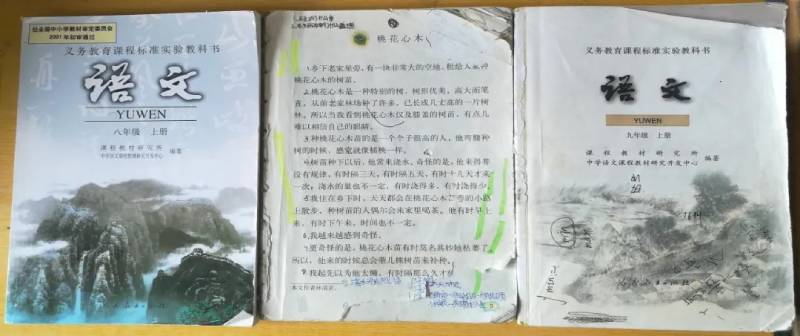 经全国中小学教材审定委员会
2001年初审通过
义务教育课程标准实验教科书
语文
YUWEN
八年级 上册
课程教材研究所
中学语文课程教材研究开发中心
编著
桃花心木
1.乡下老家屋旁,有一块非常大的空地,租给人家种
桃花心木的树苗。
2.桃花心木是一种特别的树,树形优美,高大而笔
直,从前老家林场种了许多,已长成几丈高的一片树
林。所以当我看到桃花心木仅及膝盖的树苗,有点儿
难以相信自己的眼睛。
3.种桃花心木苗的是一个个子很高的人,他弯腰种
树的时候,感觉就像插秧一样。
4.树苗种下以后,他常来浇水。奇怪的是,他来得并
没有规律,有时隔三天,有时隔五天,有时十几天才来
一次;浇水的量也不一定,有时浇得多,有时浇得少。
5.我住在乡下时,天天都会在桃花心木苗旁的小路
上散步,种树苗的人偶尔会来家里喝茶。他有时早上
来,有时下午来,时间也不一定。
6.我越来越感到奇怪。
7.更奇怪的是,桃花心木苗有时莫名其妙地枯萎了。
所以,他来的时候总会带几棵树苗来补种。
8.我起先以为他太懒,有时隔那么久才
本文作者林清玄。
义务教育课程标准实验教科书
语文
YUWEN
九年级 上册
课程教材研究所
中学语文课程教材研究开发中心
编著